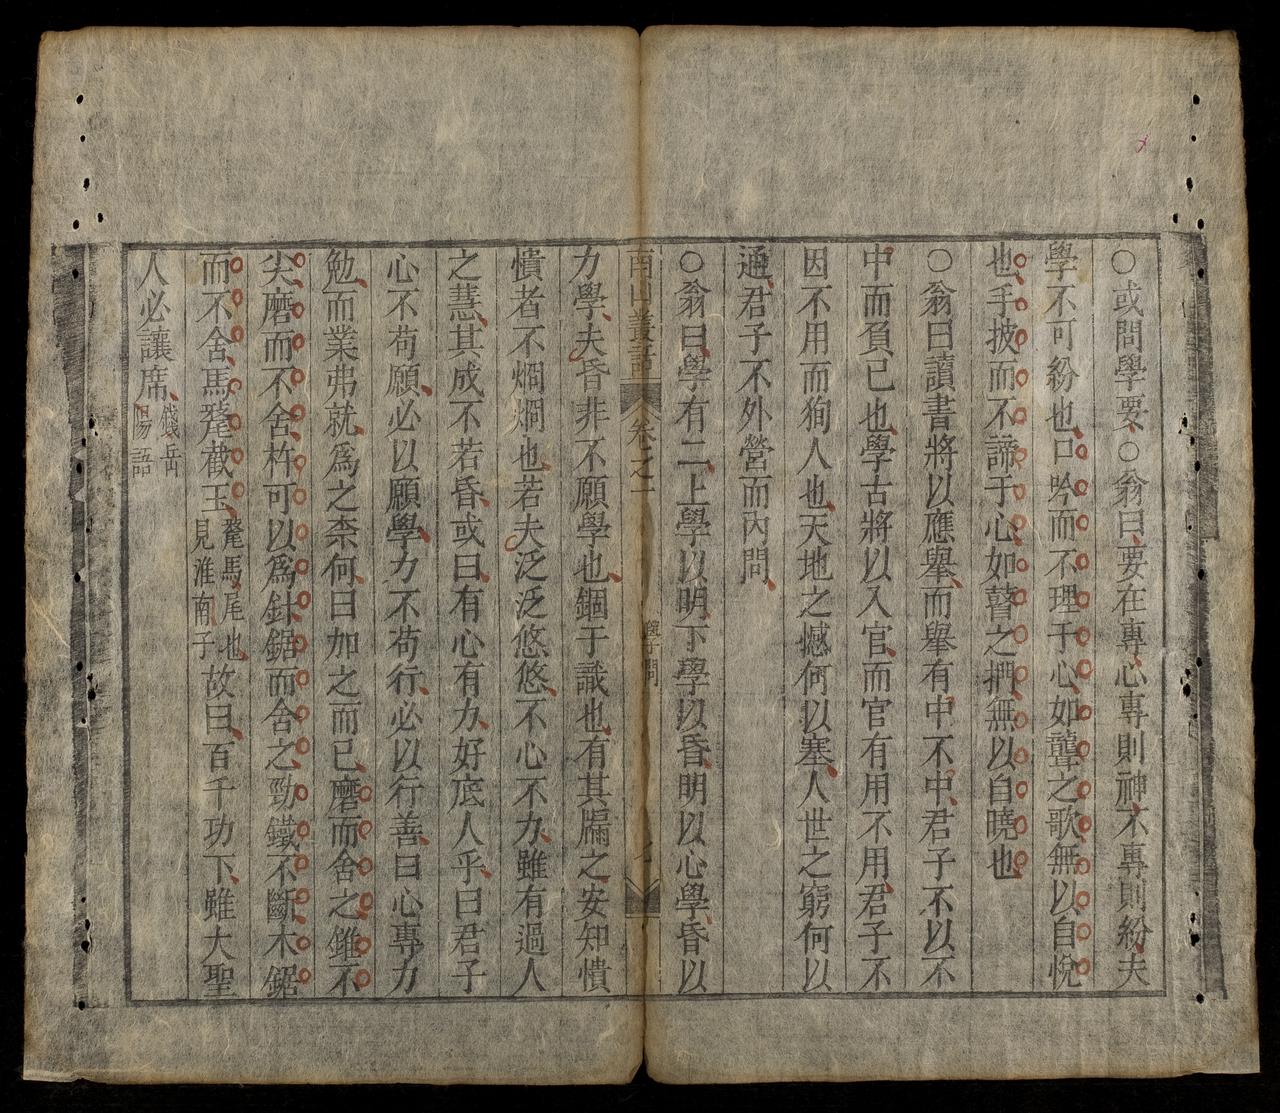 ○或問學要○翁曰要在專心專則神不專則紛夫
學不可紛也口吟而不理于心如聾之歌無以自悅
也手披而不諦于心如瞽之捫無以自曉也
○翁曰讀書將以應舉而舉有中不中君子不以不
中而負已也學古將以入官而官有用不用君子不
因不用而狥人也天地之憾何以塞人世之窮何以
通君子不外營而內問
○翁曰學有二上學以明下學以昏明以心學昏以
南山叢語 卷之一 學問 七
力學夫昏非不願學也錮于識也有其牖之安知憒
憒者不烱烱也若夫泛泛悠悠不心不力雖有過人
之慧其成不若昏或曰有心有力好底人乎曰君子
心不苟願必以願學力不苟行必以行善曰心專力
勉而業弗就爲之柰何曰加之而已磨而舍之錐不
尖磨而不舍杵可以爲針鋸而舍之勁鐵不斷木鋸
而不舍馬氂截玉氂馬尾也見淮南子故曰百千功下雖大聖
人必讓席錢岳陽語